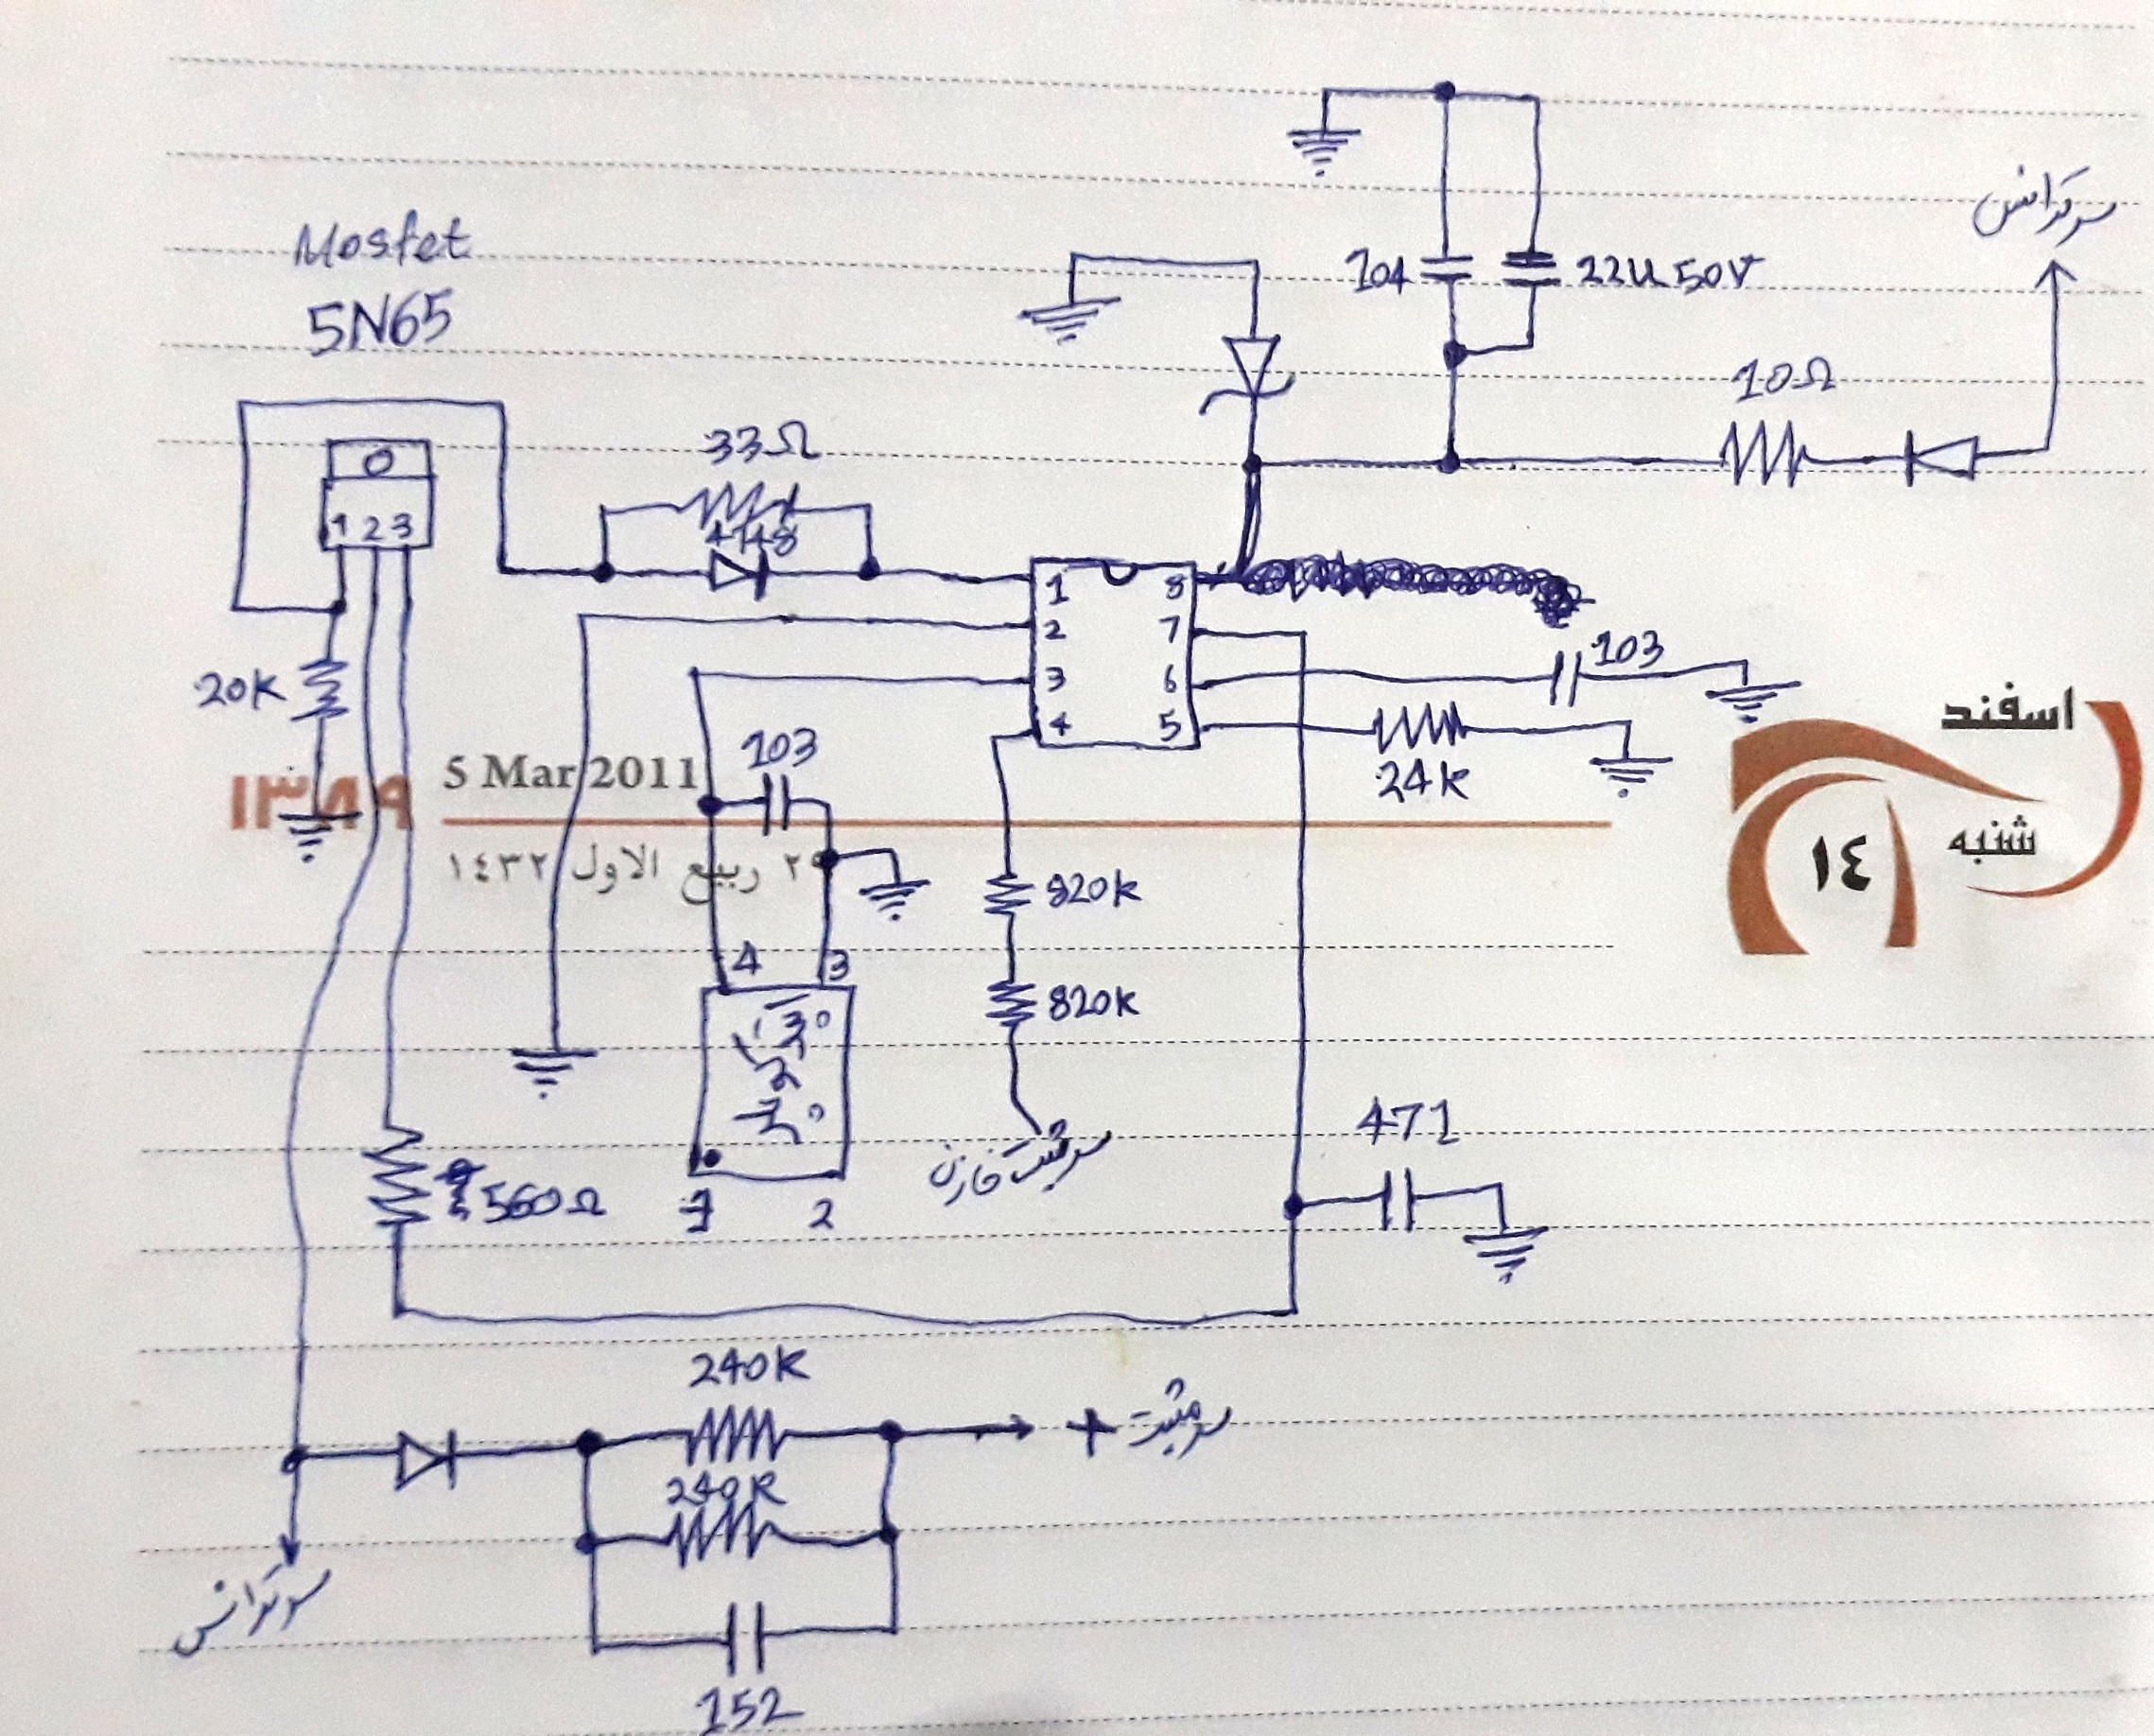 Mosfet
5N65
104
22u 50V
سر ترانس
10Ω
33Ω
4148
1 2 3
20K
1 8
2 7
3 6
4 5
103
24K
103
اسفند
شنبه
١٤
١٣٨٩
5 Mar 2011
٢٩ ربيع الاول ١٤٣٢
820K
820K
4 3
1 2
سر مثبت خازن
471
560Ω
240K
240K
سر مثبت +
سر ترانس
152